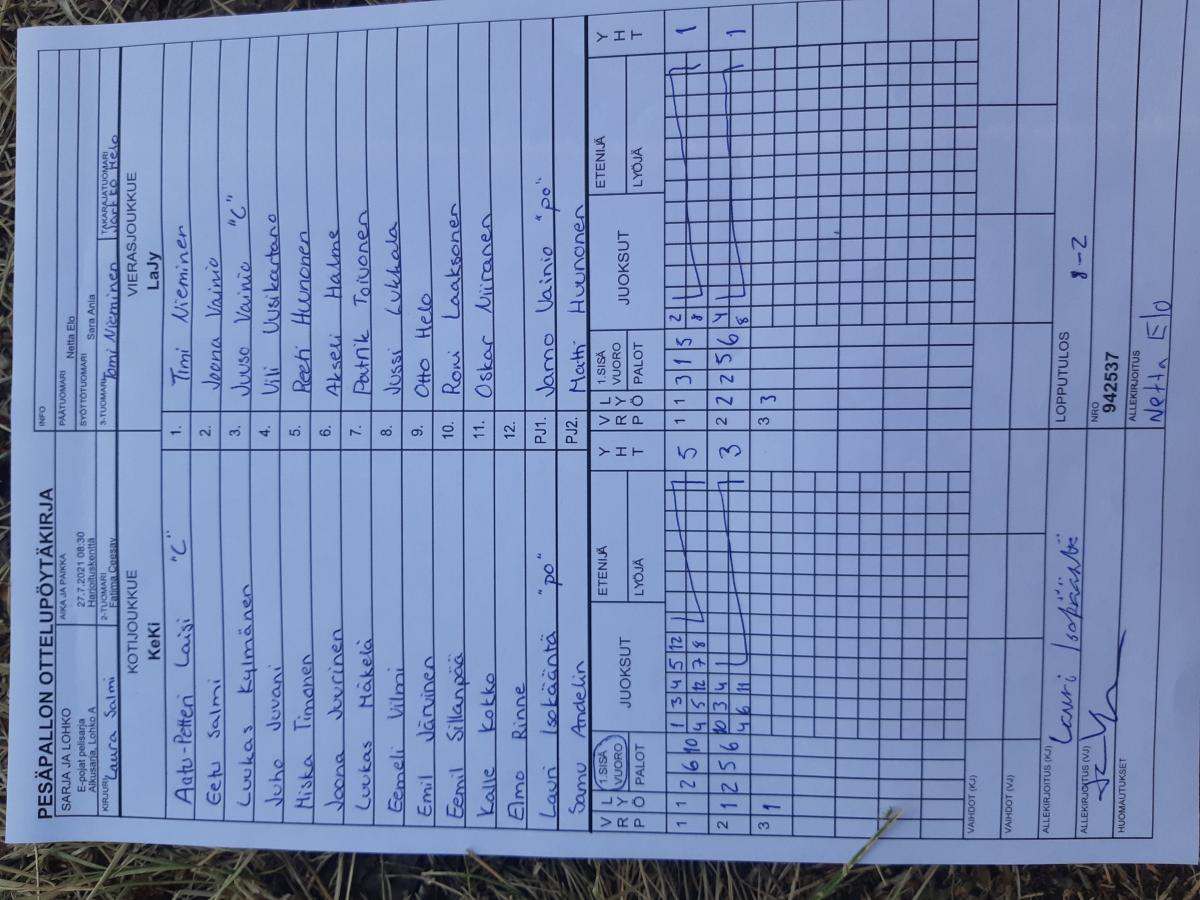 PESÄPALLON OTTELUPÖYTÄKIRJA
INFO
SARJA JA LOHKO
E-pojat pelisarja
Alkusarja, Lohko A
AIKA JA PAIKKA
27.7.2021 08:30
Harjoituskenttä
PÄÄTUOMARI Netta Elo
SYÖTTÖTUOMARI Sara Ania
KIRJURI Laura Salmi
2-TUOMARI
Fatima Ceesay
3-TUOMARI Tomi Nieminen
TAKARAJATUOMARI
Jarkko Helo
KOTIJOUKKUE
KeKi
VIERASJOUKKUE
LaJy
Aatu-Petteri Laisi "C" 1. Timi Nieminen
Eetu Salmi 2. Joona Vainio
Luukas Kylmänen 3. Juuso Vainio "C"
Juho Juvani 4. Vili Uusikartano
Miska Timonen 5. Peeti Huunonen
Joona Juurinen 6. Akseli Halme
Luukas Mäkelä 7. Patrik Toivonen
Eemeli Vilmi 8. Jussi Lukkala
Emil Järvinen 9. Otto Helo
Eemil Sillanpää 10. Roni Laaksonen
Kalle Kokko 11. Oskar Niiranen
Elmo Rinne 12.
Lauri Isokääntä "po" PJ1. Jarno Vainio "po"
Samu Andelin PJ2. Matti Huunonen
V R L Y P Ö 1.SISÄ VUORO PALOT JUOKSUT ETENIJÄ LYÖJÄ Y H T
V R L Y P Ö 1.SISÄ VUORO PALOT JUOKSUT ETENIJÄ LYÖJÄ Y H T
1 1 2 6 10 1 3 4 5 12 5 1 1 3 1 5 2 1
4 5 12 7 8 8
2 1 2 5 6 10 3 4 3 2 2 2 5 6 4 1
4 6 11 8
3 1 3 3
VAIHDOT (KJ)
VAIHDOT (VJ)
ALLEKIRJOITUS (KJ) Lauri
LOPPUTULOS 8-2
ALLEKIRJOITUS (VJ)
NRO
942537
HUOMAUTUKSET
ALLEKIRJOITUS
Netta Elo